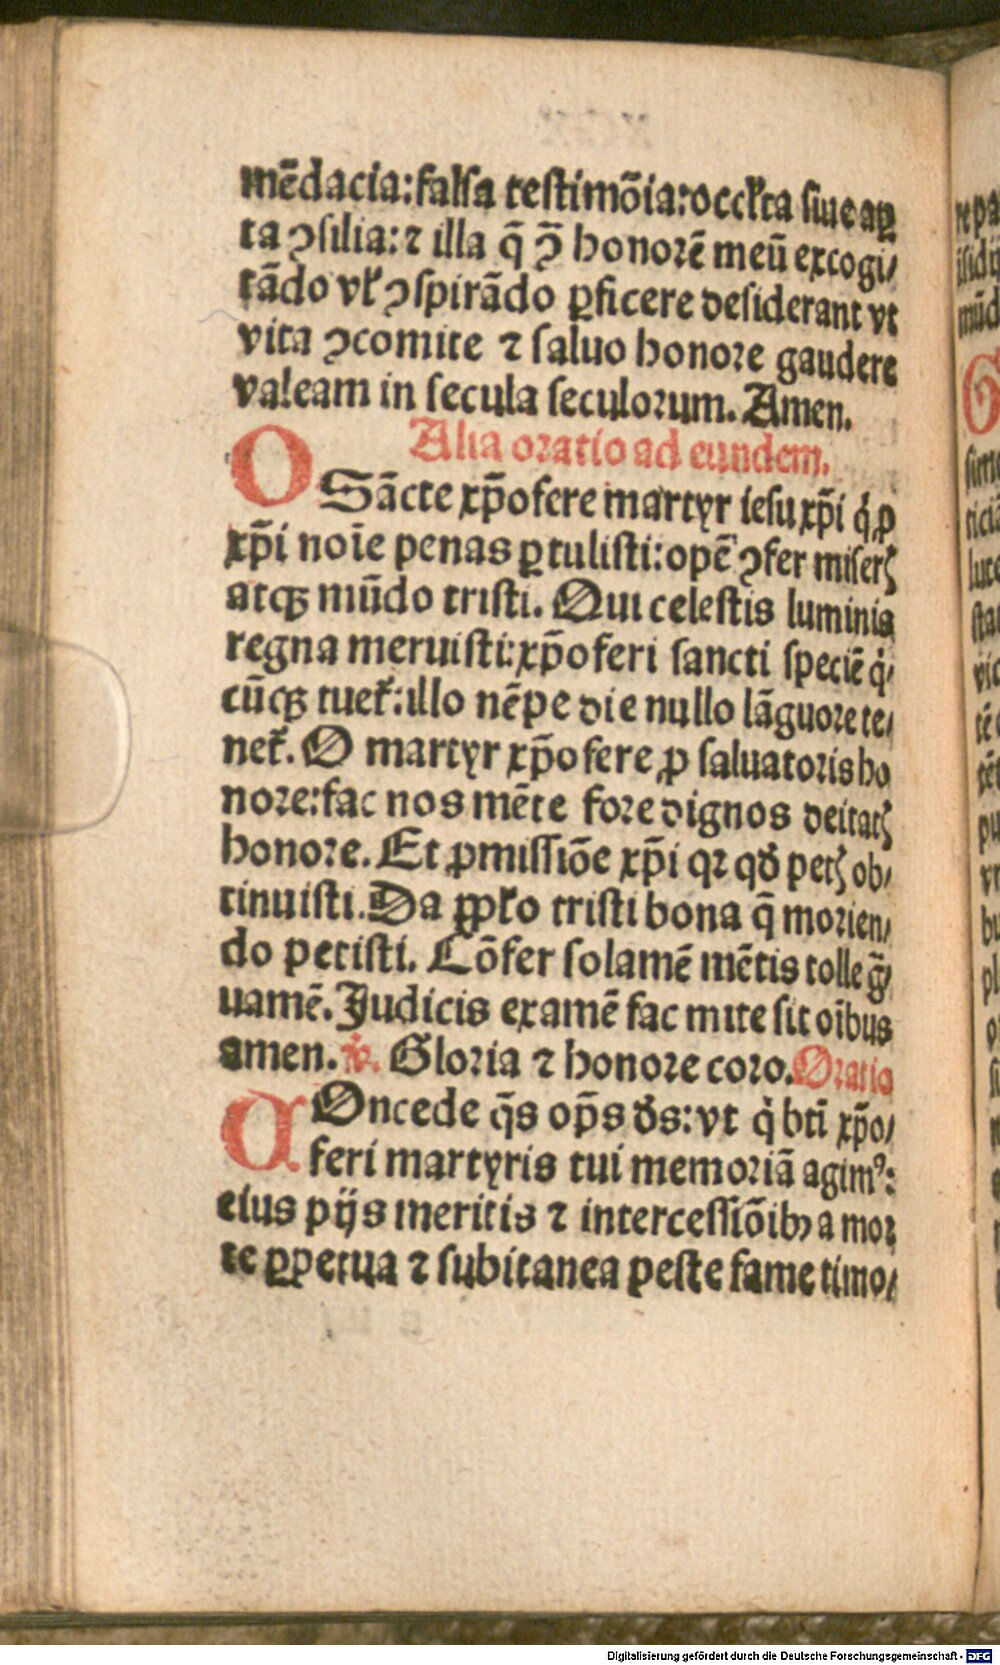 mēdacia: falsa testimōia: occľta siue aꝑ
ta ꝯsilia: ⁊ illa q̄ ꝯ̄ honorē meū excogi⸗
tādo vľ ꝯspirādo ꝑficere desiderant vt
vita ꝯcomite ⁊ saluo honore gaudere
valeam in secula seculorum. Amen.
Alia oratio ad eundem.
O Sācte xp̄ofere martyr iesu xp̄i q̇ ꝓ
xp̄i noīe penas ꝑtulisti: opē ꝯfer miserꝭ
atqꝫ mūdo tristi. Qui celestis luminis
regna meruisti: xp̄oferi sancti speciē q̇⸗
cūqꝫ tueť: illo nēpe die nullo lāguore te⸗
neť. O martyr xp̄ofere ꝓ saluatoris ho
nore: fac nos mēte fore dignos deitatꝭ
honore. Et ꝓmissiōe xp̄i qꝛ qð petꝭ ob⸗
tinuisti. Da ꝓpľo tristi bona q̄ morien⸗
do petisti. Cōfer solamē mētis tolle g̃⸗
uamē. Judicis examē fac mite sit oībus
amen. ℣. Gloria ⁊ honore coro. Oratio
COncede q̄s op̄s ds̄: vt q̇ btī xp̄o⸗
feri martyris tui memoriā agimꝰ:
eius pijs meritis ⁊ intercessiōibꝫ a mor
te ꝑpetua ⁊ subitanea peste fame timo⸗
re pa
G
Digitalisierung gefördert durch die Deutsche Forschungsgemeinschaft - DFG